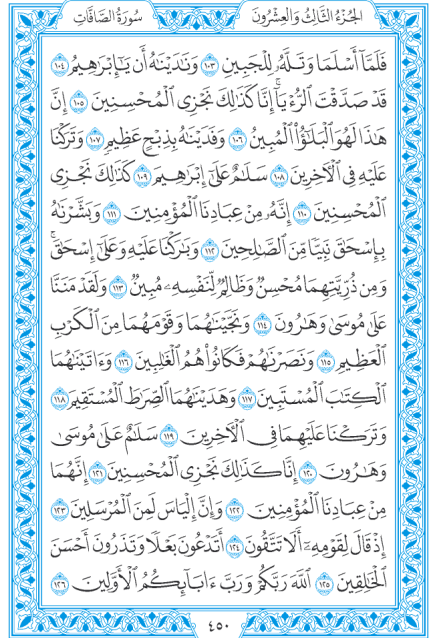 الجُزْءُ الثَّالِثُ وَالعِشْرُونَ
سُورَةُ الصَّافَّاتِ
فَلَمَّآ أَسْلَمَا وَتَلَّهُۥ لِلْجَبِينِ ١٠٣ وَنَٰدَيْنَٰهُ أَن يَٰٓإِبْرَٰهِيمُ ١٠٤
قَدْ صَدَّقْتَ ٱلرُّءْيَآۚ إِنَّا كَذَٰلِكَ نَجْزِى ٱلْمُحْسِنِينَ ١٠٥ إِنَّ
هَٰذَا لَهُوَ ٱلْبَلَٰٓؤُا۟ ٱلْمُبِينُ ١٠٦ وَفَدَيْنَٰهُ بِذِبْحٍ عَظِيمٍ ١٠٧ وَتَرَكْنَا
عَلَيْهِ فِى ٱلْأَخِرِينَ ١٠٨ سَلَٰمٌ عَلَىٰٓ إِبْرَٰهِيمَ ١٠٩ كَذَٰلِكَ نَجْزِى
ٱلْمُحْسِنِينَ ١١٠ إِنَّهُۥ مِنْ عِبَادِنَا ٱلْمُؤْمِنِينَ ١١١ وَبَشَّرْنَٰهُ
بِإِسْحَٰقَ نَبِيًّا مِّنَ ٱلصَّٰلِحِينَ ١١٢ وَبَٰرَكْنَا عَلَيْهِ وَعَلَىٰٓ إِسْحَٰقَۚ
وَمِن ذُرِّيَّتِهِمَا مُحْسِنٌ وَظَالِمٌ لِّنَفْسِهِۦ مُبِينٌ ١١٣ وَلَقَدْ مَنَنَّا
عَلَىٰ مُوسَىٰ وَهَٰرُونَ ١١٤ وَنَجَّيْنَٰهُمَا وَقَوْمَهُمَا مِنَ ٱلْكَرْبِ
ٱلْعَظِيمِ ١١٥ وَنَصَرْنَٰهُمْ فَكَانُوا۟ هُمُ ٱلْغَٰلِبِينَ ١١٦ وَءَاتَيْنَٰهُمَا
ٱلْكِتَٰبَ ٱلْمُسْتَبِينَ ١١٧ وَهَدَيْنَٰهُمَا ٱلصِّرَٰطَ ٱلْمُسْتَقِيمَ ١١٨
وَتَرَكْنَا عَلَيْهِمَا فِى ٱلْأَخِرِينَ ١١٩ سَلَٰمٌ عَلَىٰ مُوسَىٰ
وَهَٰرُونَ ١٢٠ إِنَّا كَذَٰلِكَ نَجْزِى ٱلْمُحْسِنِينَ ١٢١ إِنَّهُمَا
مِنْ عِبَادِنَا ٱلْمُؤْمِنِينَ ١٢٢ وَإِنَّ إِلْيَاسَ لَمِنَ ٱلْمُرْسَلِينَ ١٢٣
إِذْ قَالَ لِقَوْمِهِۦٓ أَلَا تَتَّقُونَ ١٢٤ أَتَدْعُونَ بَعْلًا وَتَذَرُونَ أَحْسَنَ
ٱلْخَٰلِقِينَ ١٢٥ ٱللَّهَ رَبَّكُمْ وَرَبَّ ءَابَآئِكُمُ ٱلْأَوَّلِينَ ١٢٦
٤٥٠